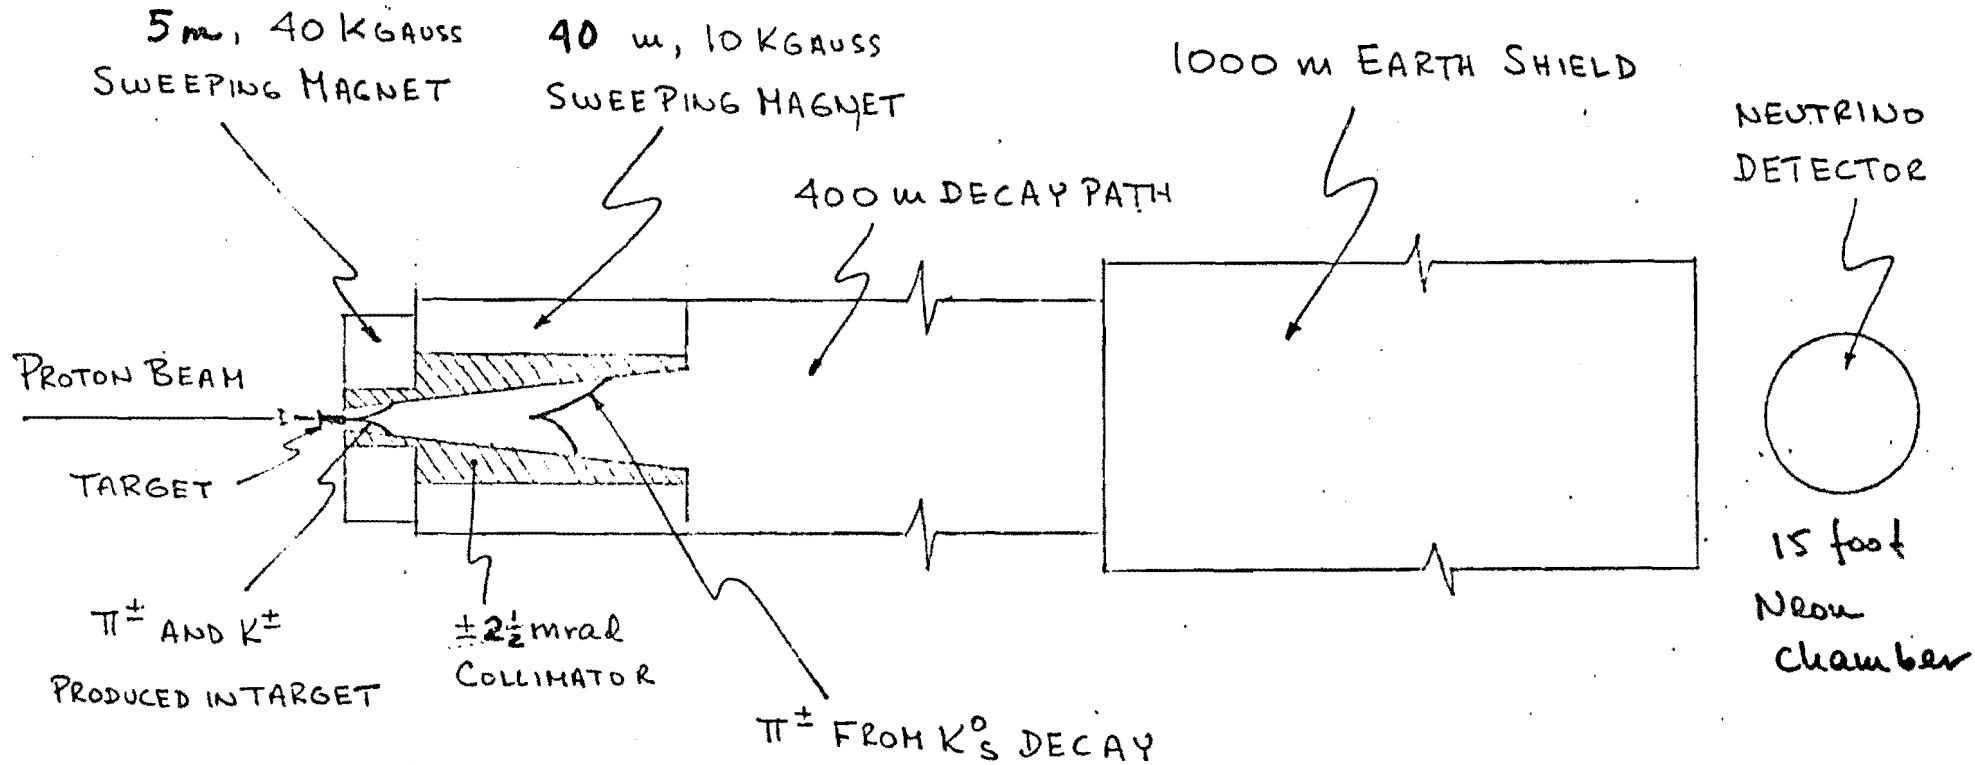 5 m, 40 KGAUSS
SWEEPING MAGNET
40 m, 10 KGAUSS
SWEEPING MAGNET
1000 m EARTH SHIELD
NEUTRINO
DETECTOR
400 m DECAY PATH
PROTON BEAM
TARGET
π± AND K±
PRODUCED IN TARGET
±2½ mrad
COLLIMATOR
π± FROM K⁰S DECAY
15 foot
Neon
chamber